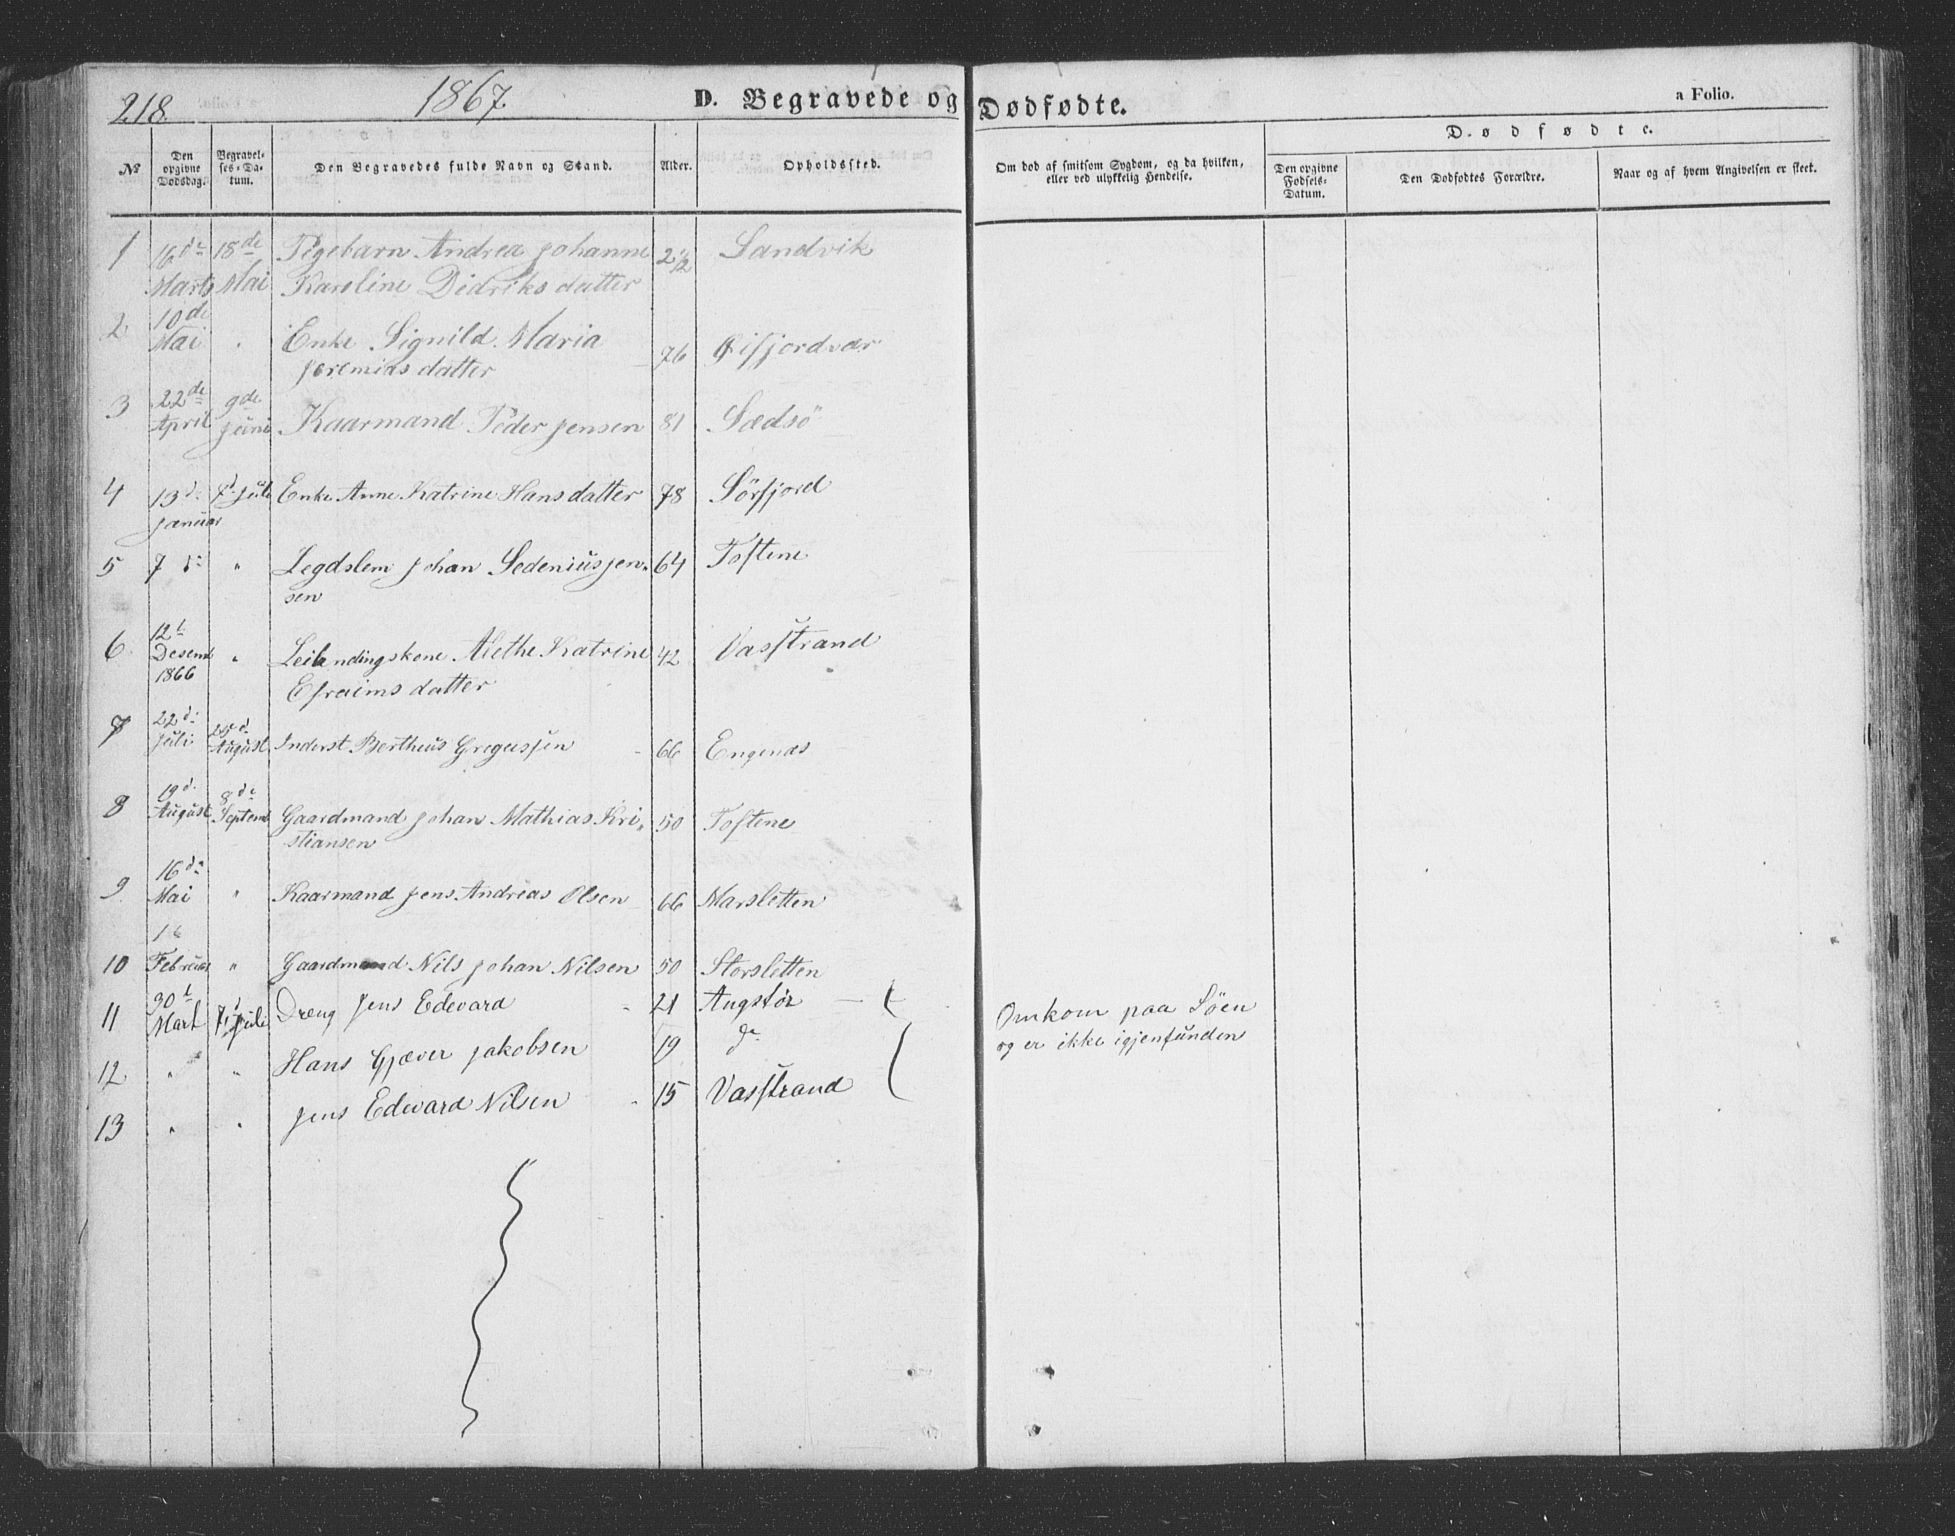 218. 1867. D. Begravede og Dødfødte. a Folio.
Dødfødte.
No Den opgivne Dødsdag. Begravelses-Datum. Den Begravedes fulde Navn og Stand. Alder. Opholdssted. Om død af smitsom Sygdom, og da hvilken, eller ved ulykkelig Hendelse. Den opgivne Fødsels-Datum. Den Dødfødtes Forældre. Naar og af hvem Angivelsen er skeet.
1 16de 18de Pigebarn Andrea Johanne 2½ Sandvik
Marts Mai Karoline Didriksdatter
2. 10de
Mai " Enke Signild Maria 76 Øifjordvær
Jeremiasdatter
3 22de 9de
April Juni Kaarmand Peder Jensen 81 Sædsö
4 13d. 7d. Juli Enke Anne Katrine Hansdatter 78 Sörfjord
Januar
5 7 d: " Legdslem Johan Sedenius Jen- 64 Toftene
sen
6. 12t
Desemb " Leilendingskone Alethe Katrine 42 Vasstrand
1866 Efraimsdatter
7 22d:
Juli August Inderst Bertheus Gregussen 66 Engenæs
8 19d. 8de
August Septemb Gaardmand Johan Mathias Kri- 50 Toftene
stiansen
9. 16de
Mai " Kaarmand Jens Andreas Olsen 66 Marsletten
16
10 Februar " Gaardmand Nils Johan Nilsen 50 Storsletten
11 30t
Mart 7d Juli Dreng Jens Edevard 21 Angstör Omkom paa Söen
12. " " Hans Gjæver Jakobsen 19 do og er ikke igjenfunden
13 " " Jens Edevard Nilsen 15 Vasstrand